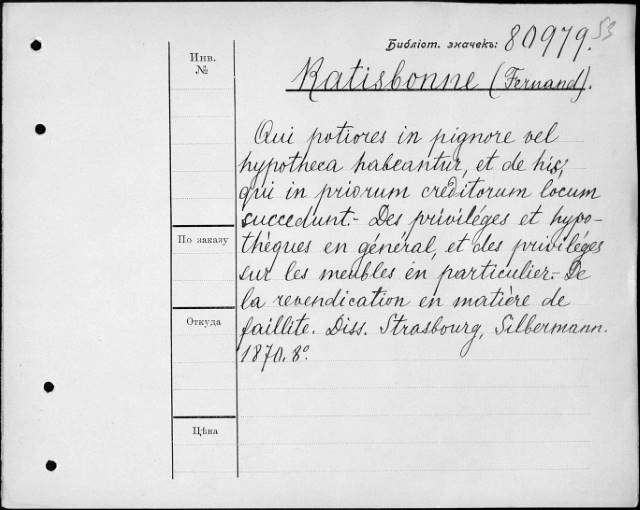 Библіот. значекъ: 80979. 53
Инв.
№
Ratisbonne (Fernand).
Qui potiores in pignore vel
hypotheca habeantur, et de his,
qui in priorum creditorum locum
succedunt.- Des priviléges et hypo-
thèques en général, et des priviléges
sur les meubles en particulier.- De
la revendication en matière de
faillite. Diss. Strasbourg, Silbermann.
1870. 8º.
По заказу
Откуда
Цѣна